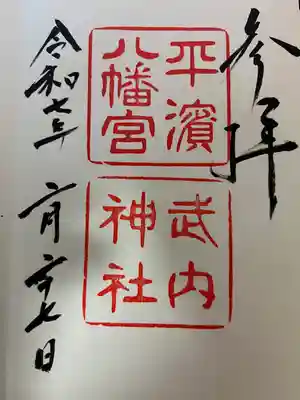 参拝
平濱
八幡宮
武内
神社
令和七年 二月二十七日